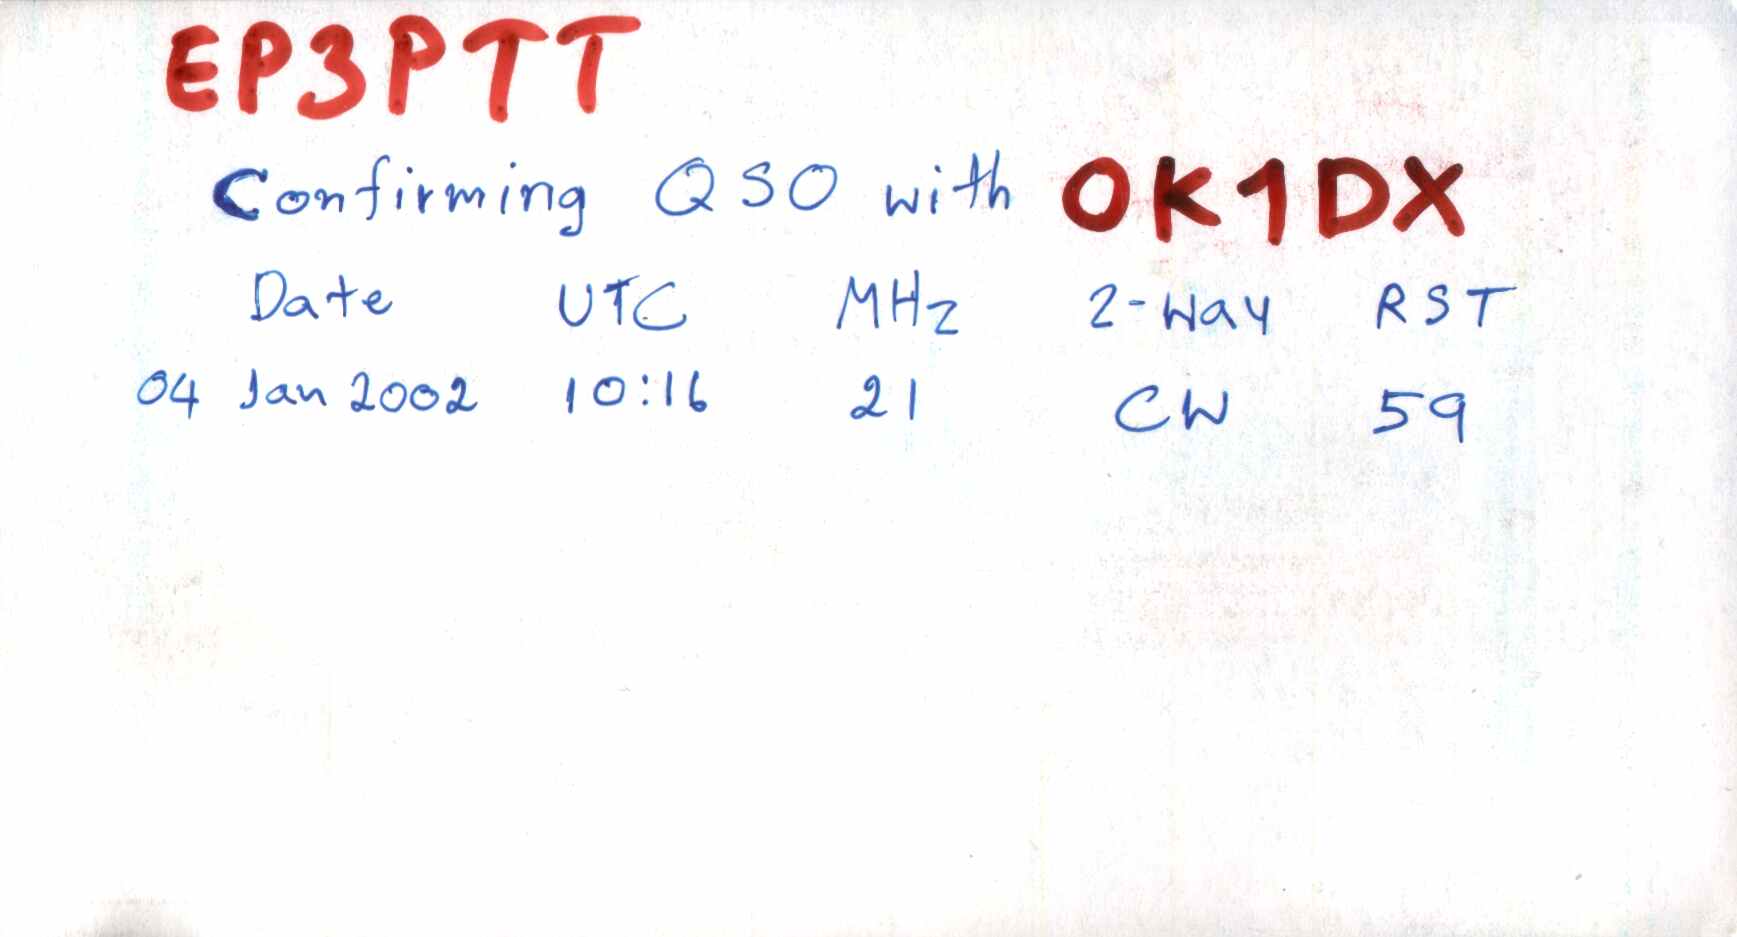 EP3PTT
Confirming QSO with OK1DX
Date UTC MHz 2-Way RST
04 Jan 2002 10:16 21 CW 59